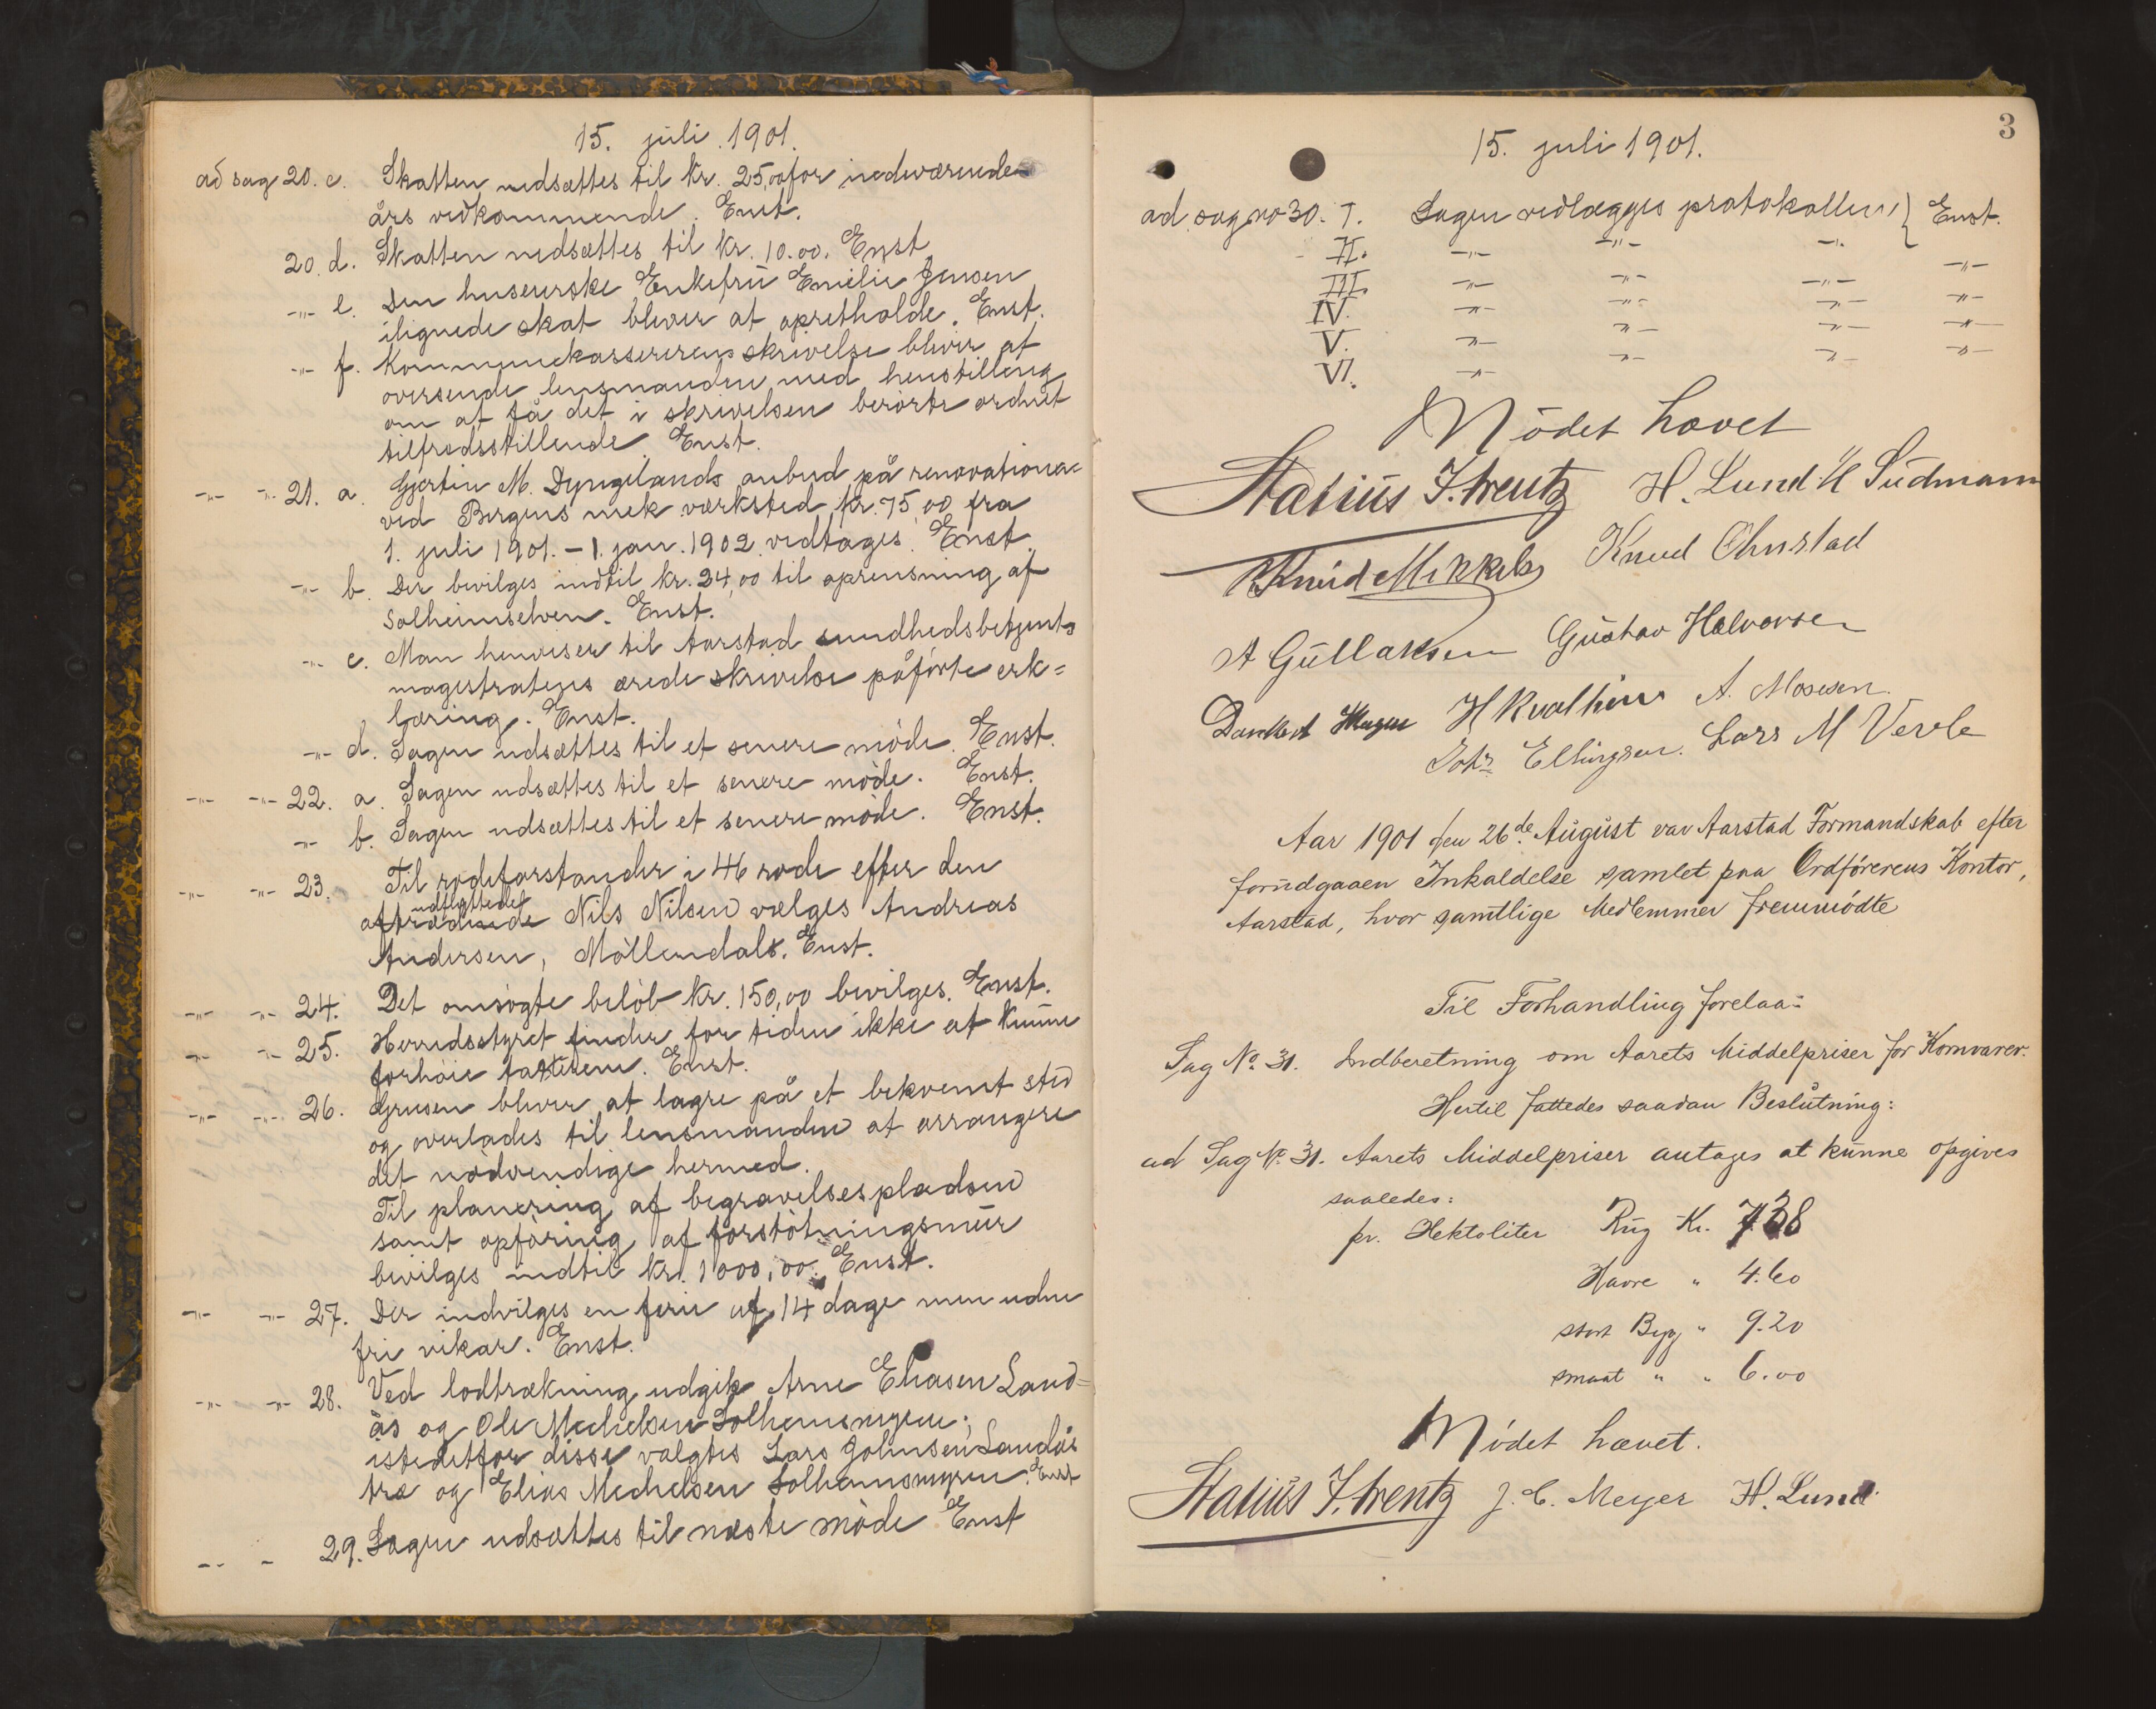 15. juli 1901.
ad sag 20. c. Skatten nedsættes til kr. 25,00 for indeværende
års vedkommende. Enst.
20. d. Skatten nedsættes til kr. 10.00. Enst
-"- e. Den huseierske Enkefru Emilie Jensen
ilignede skat bliver at opretholde. Enst.
-"- f. Kommunekassererens skrivelse blivir at
oversende lensmanden med henstilling
om at få det i skrivelsen berørte ordnet
tilfredsstillende. Enst.
-"- -"- 21. a. Gjertin M. Dyngelands anbud på renovationen
ved Bergens mek. værksted kr. 75,00 fra
1. juli 1901. - 1. jan. 1902 vedtages. Enst.
-"- b. Der bevilges indtil kr. 24,00 til oprensning af
Solheimselven. Enst.
-"- c. Man henviser til Aarstad sundhedsbetjents
magistratens ærede skrivelse påførte erk=
læring. Enst.
-"- d. Sagen udsættes til et senere møde. Enst.
-"- -"- 22. a. Sagen udsættes til et senere møde. Enst.
-"- b. Sagen udsættes til et senere møde. Enst.
-"- -"- 23. Til rodeforstander i 46 rode efter den
udflyttede
aftrædende Nils Nilsen vælges Andreas
Andersen, Møllendal. Enst.
-"- -"- 24. Det omsøgte beløb kr. 150,00 bevilges. Enst.
-"- -"- 25. Herredsstyret finder for tiden ikke at kunne
forhøie taksten. Enst.
-"- -"- 26. Grusen bliver at lagre på et bekvemt sted
og overlades til lensmanden at arrangere
det nødvendige hermed.
Til planering af begravelsespladsen
samt opføring af forstøtningsmur
bevilges indtil kr. 1000,00. Enst.
-"- -"- 27. Der indvilges en ferie af 14 dage men uden
fri vikar. Enst.
-"- -"- 28. Ved lodtrækning udgik Arne Eliasen Land=
ås og Ole Michelsen Solheimsmyren;
istedetfor disse valgtes Lars Johnsen Landås
træ og Elias Michelsen Solheimsmyren. Enst
-"- - 29. Sagen udsættes til næste møde Enst
3
15. juli 1901.
ad sag no 30. I. Sagen vedlægges protokollen } Enst.
II. -"- -"- -"- -"-
III. -"- -"- -"- -"-
IV. -"- -"- -"- -"-
V. -"- -"- -"- -"-
VI. -"- -"- -"-
Mødet hævet
Statius J. trentz H. Lund H Südmann
Knud Mikkels Knud Ohnstad
A Gullaksen Gustav Halvorsen
Dankert H Kvalheim A. Mosesen.
Johs Ellingsen. Lars M Verle
Aar 1901 den 26de August var Aarstad Formandskab efter
forudgaaen Inkaldelse samlet paa Ordførerens Kontor,
Aarstad, hvor samtlige Medlemmer fremmødte
Til Forhandling forelaa:
Sag No. 31. Indberetning om Aarets Middelpriser for Kornvarer.
Hertil fattedes saadan Beslutning:
ad Sag No. 31. Aarets Middelpriser antages at kunne opgives
saaledes:
pr. Hektoliter Rug Kr. 7.38
Havre " 4.60
stort Byg " 9.20
smaat " " 6.00
Mødet hævet.
Statius J. trentz J. C. Meyer H. Lund